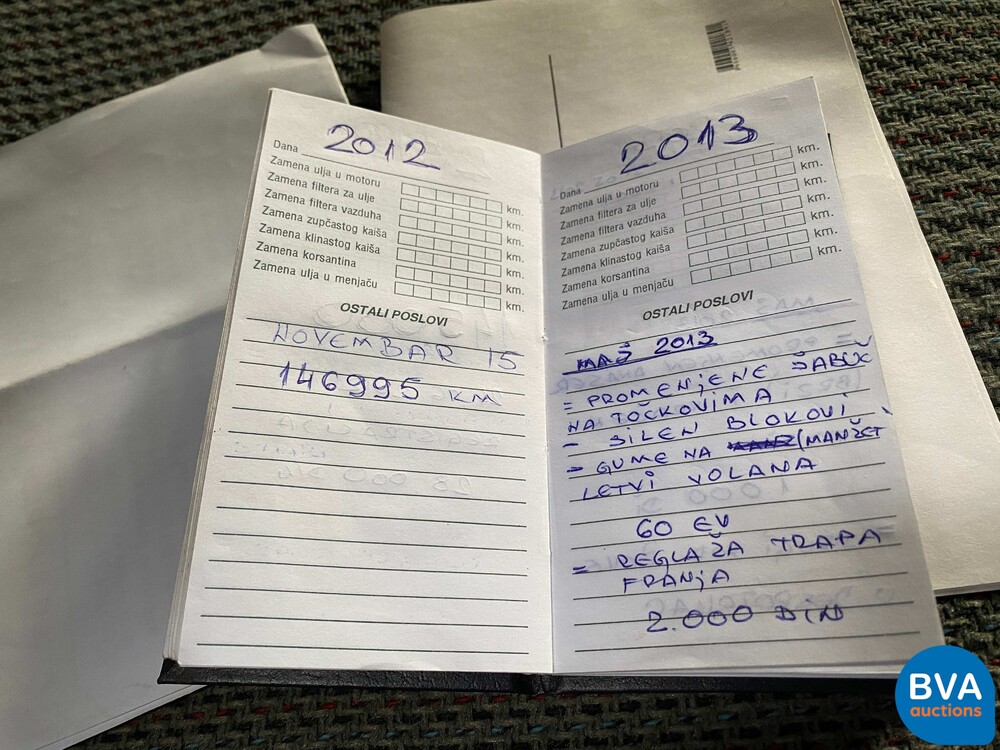 2012
Dana
Zamena ulja u motoru km.
Zamena filtera za ulje
Zamena filtera vazduha km.
Zamena zupčastog kaiša km.
Zamena klinastog kaiša km.
Zamena korsantina km.
Zamena ulja u menjaču km.
OSTALI POSLOVI
NOVEMBAR 15
146995 KM
2013
Dana km.
Zamena ulja u motoru km.
Zamena filtera za ulje km.
Zamena filtera vazduha km.
Zamena zupčastog kaiša km.
Zamena klinastog kaiša km.
Zamena korsantina
Zamena ulja u menjaču
OSTALI POSLOVI
MAJ 2013
= PROMENJENE
NA TOČKOVIMA
- SILEN BLOKOVI
= GUME NA (MANŽET
LETVI VOLANA
60 EV
= REGLAŽA TRAPA
FRANJA
2.000 DIN
BVA
auctions